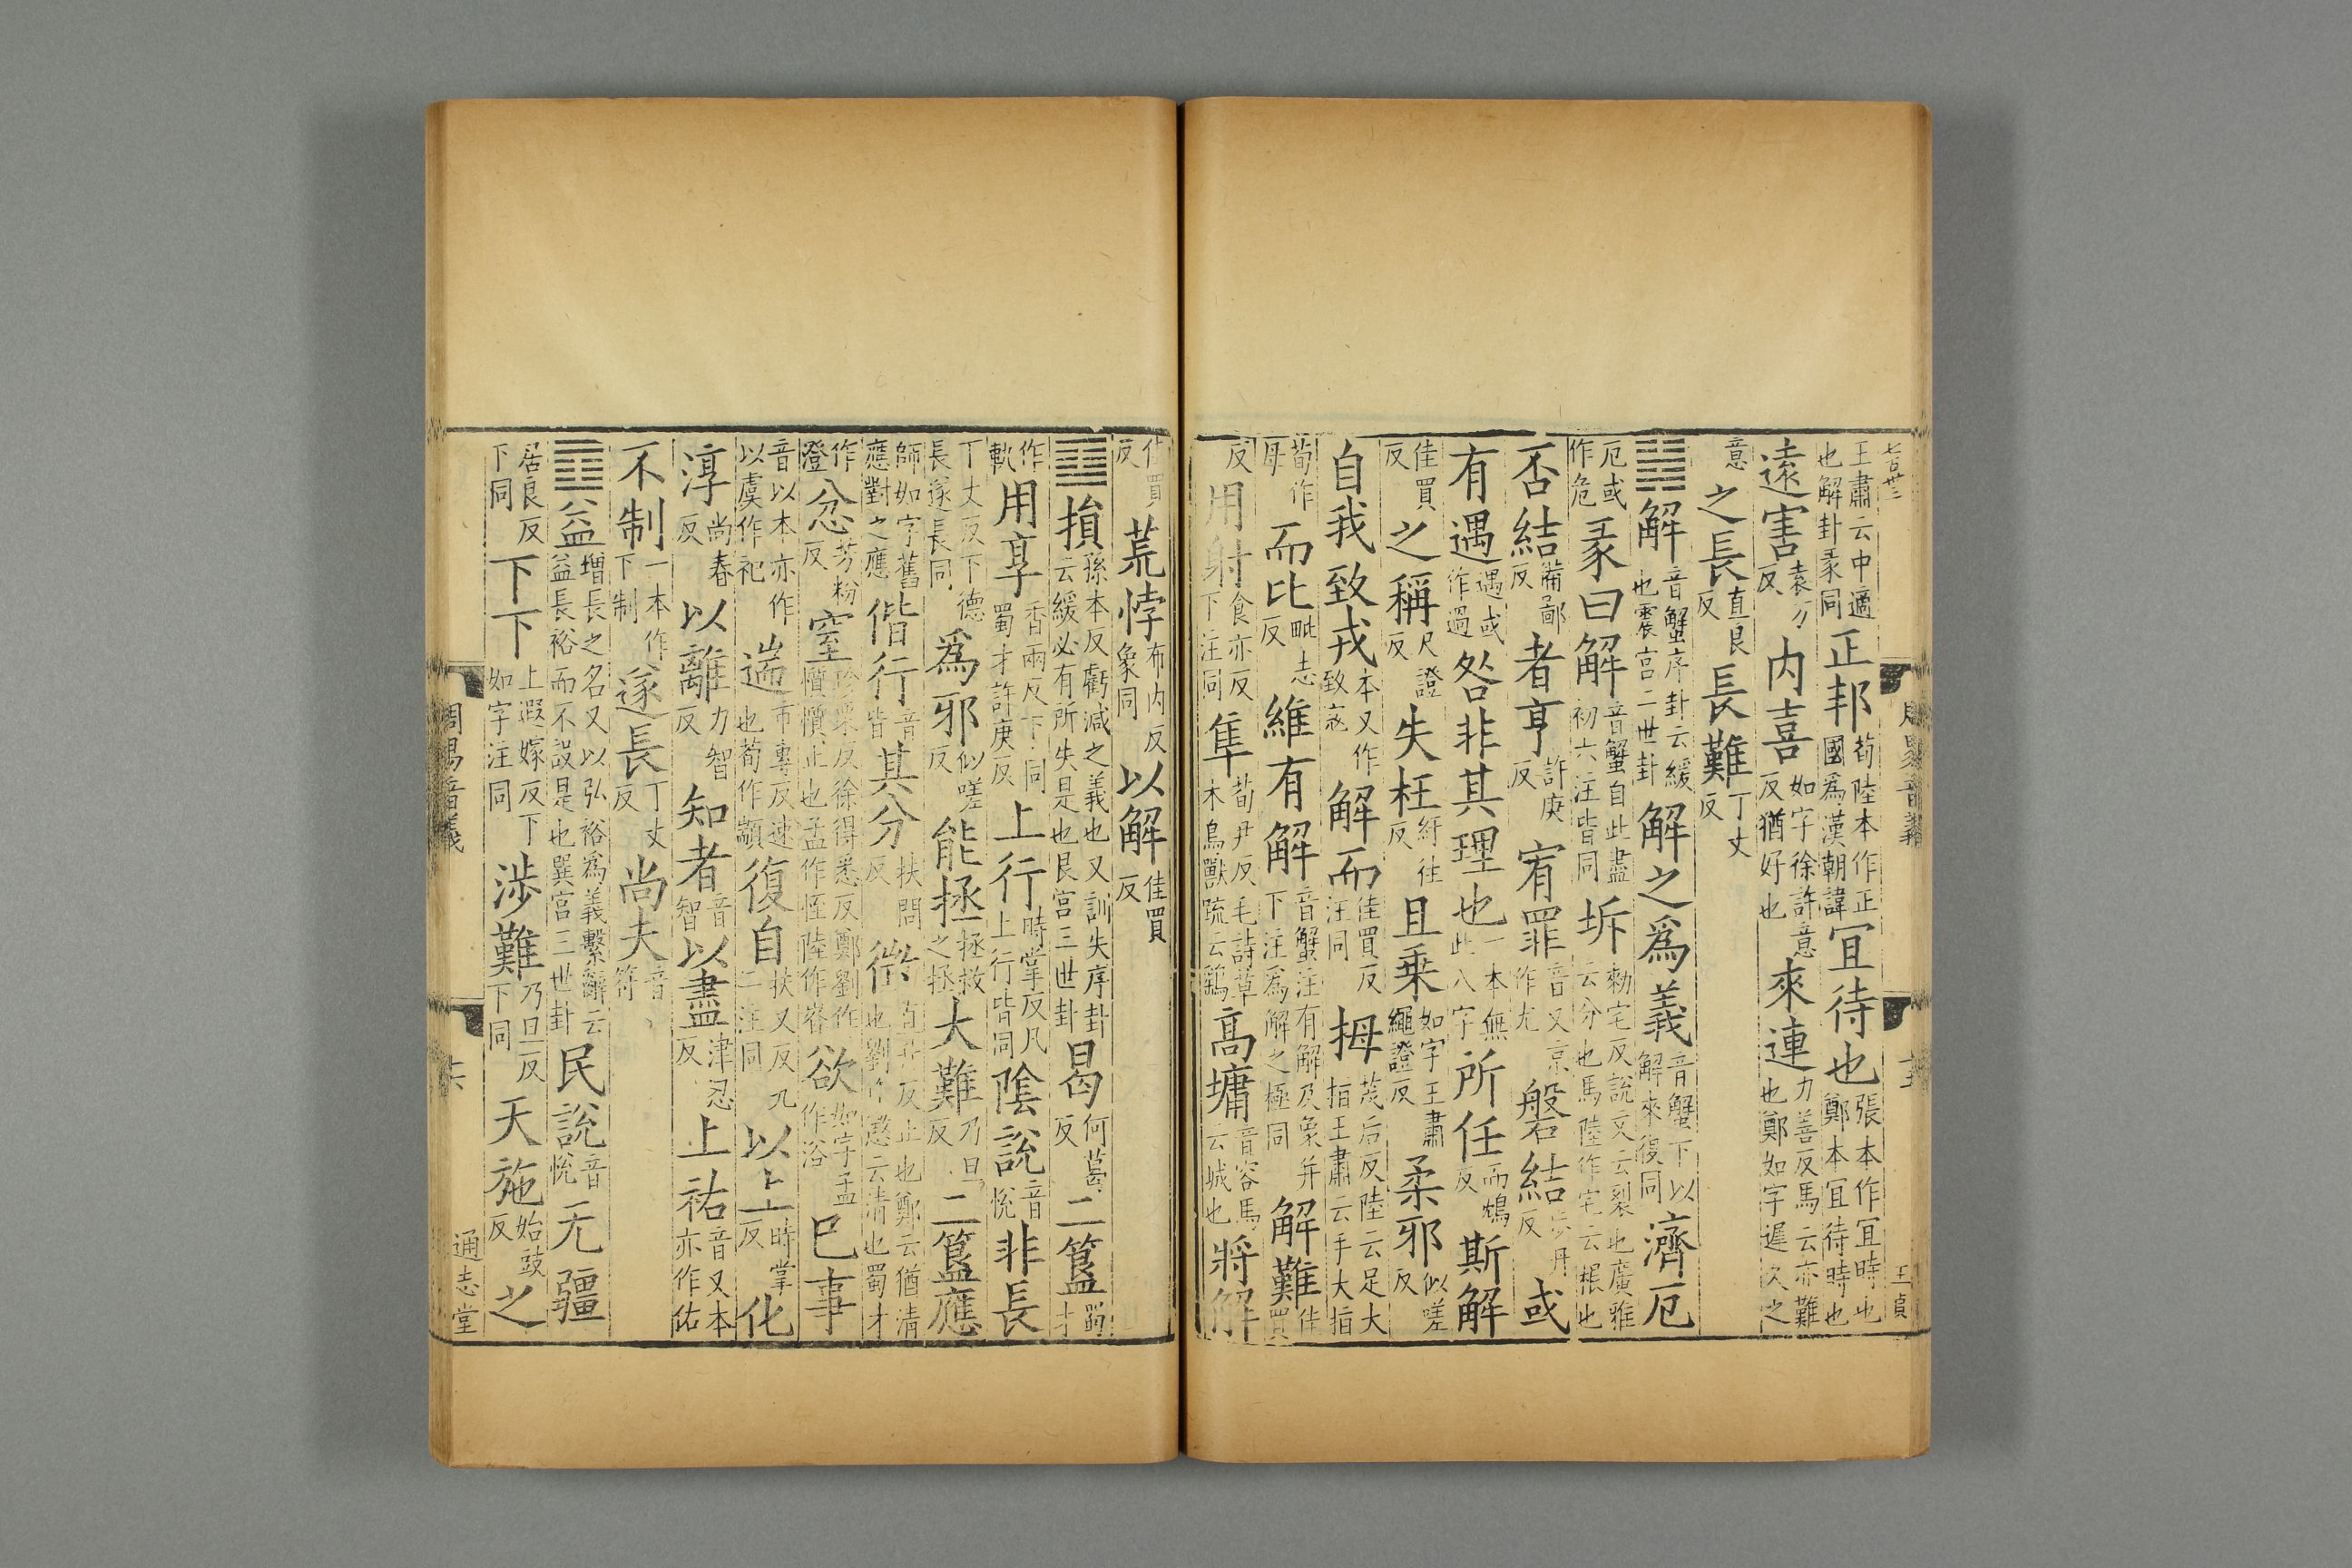 王肅云中適也解卦彖同正邦荀陸本作正國爲漢朝諱宜待也張本作宜時也鄭本宜待時也
遠害袁万反内喜如字徐許意反猶好也來連力善反馬云亦難也鄭如字遲久之
意之長直良反長難丁丈反
䷧解音蟹序卦云緩也震宮二世卦解之爲義音蟹下以解來復同濟厄
厄或作危彖曰解音蟹自此盡初六注皆同坼勑宅反說文云裂也廣雅云分也馬陸作宅云根也
否結備鄙反者亨許庚反宥罪音又京作尤磐結步丹反或
有遇遇或作過咎非其理也一本無此八字所任而鴆反斯解
佳買反之稱尺證反失枉紆往反且乘如字王肅繩證反柔邪似嗟反
自我致戎本又作致寇解而佳買反注同拇茂后反陸云足大指王肅云手大指
荀作母而比毗志反維有解音蟹注有解及象并下注爲解之極同解難佳買
反用射食亦反下注同隼荀尹反毛詩草木鳥獸疏云鷂高墉音容馬云城也將解
佳買反荒悖布内反象同以解佳買反
䷨損孫本反虧減之義也又訓失序卦云緩必有所失是也艮宮三世卦曷何葛反二簋蜀才
作軌用享香兩反下同蜀才許庚反上行時掌反凡上行皆同陰說音悅非長
丁丈反下德長遂長同爲邪似嗟反能拯拯救之拯大難乃旦反二簋應
師如字舊應對之應偕行音皆其分扶問反徵直升反止也鄭云猶清也劉作懲云清也蜀才
作澄忿芳粉反窒珍栗反徐得悉反鄭劉作懫懫止也孟作恎陸作㟓欲如字孟作浴巳事
音以本亦作以虞作祀遄市專反速也荀作顓復自扶又反凡二注同以上時掌反化
淳尚春反以離力智反知者音智以盡津忍反上祐音又本亦作佑
不制一本作下制遂長丁丈反尚夫音符
䷩益增長之名又以弘裕爲義繫辭云益長裕而不設是也巽宮三世卦民說音悅无疆
居良反下同下下上遐嫁反下如字注同涉難乃旦反下同天施始豉反之
周易音義
通志堂